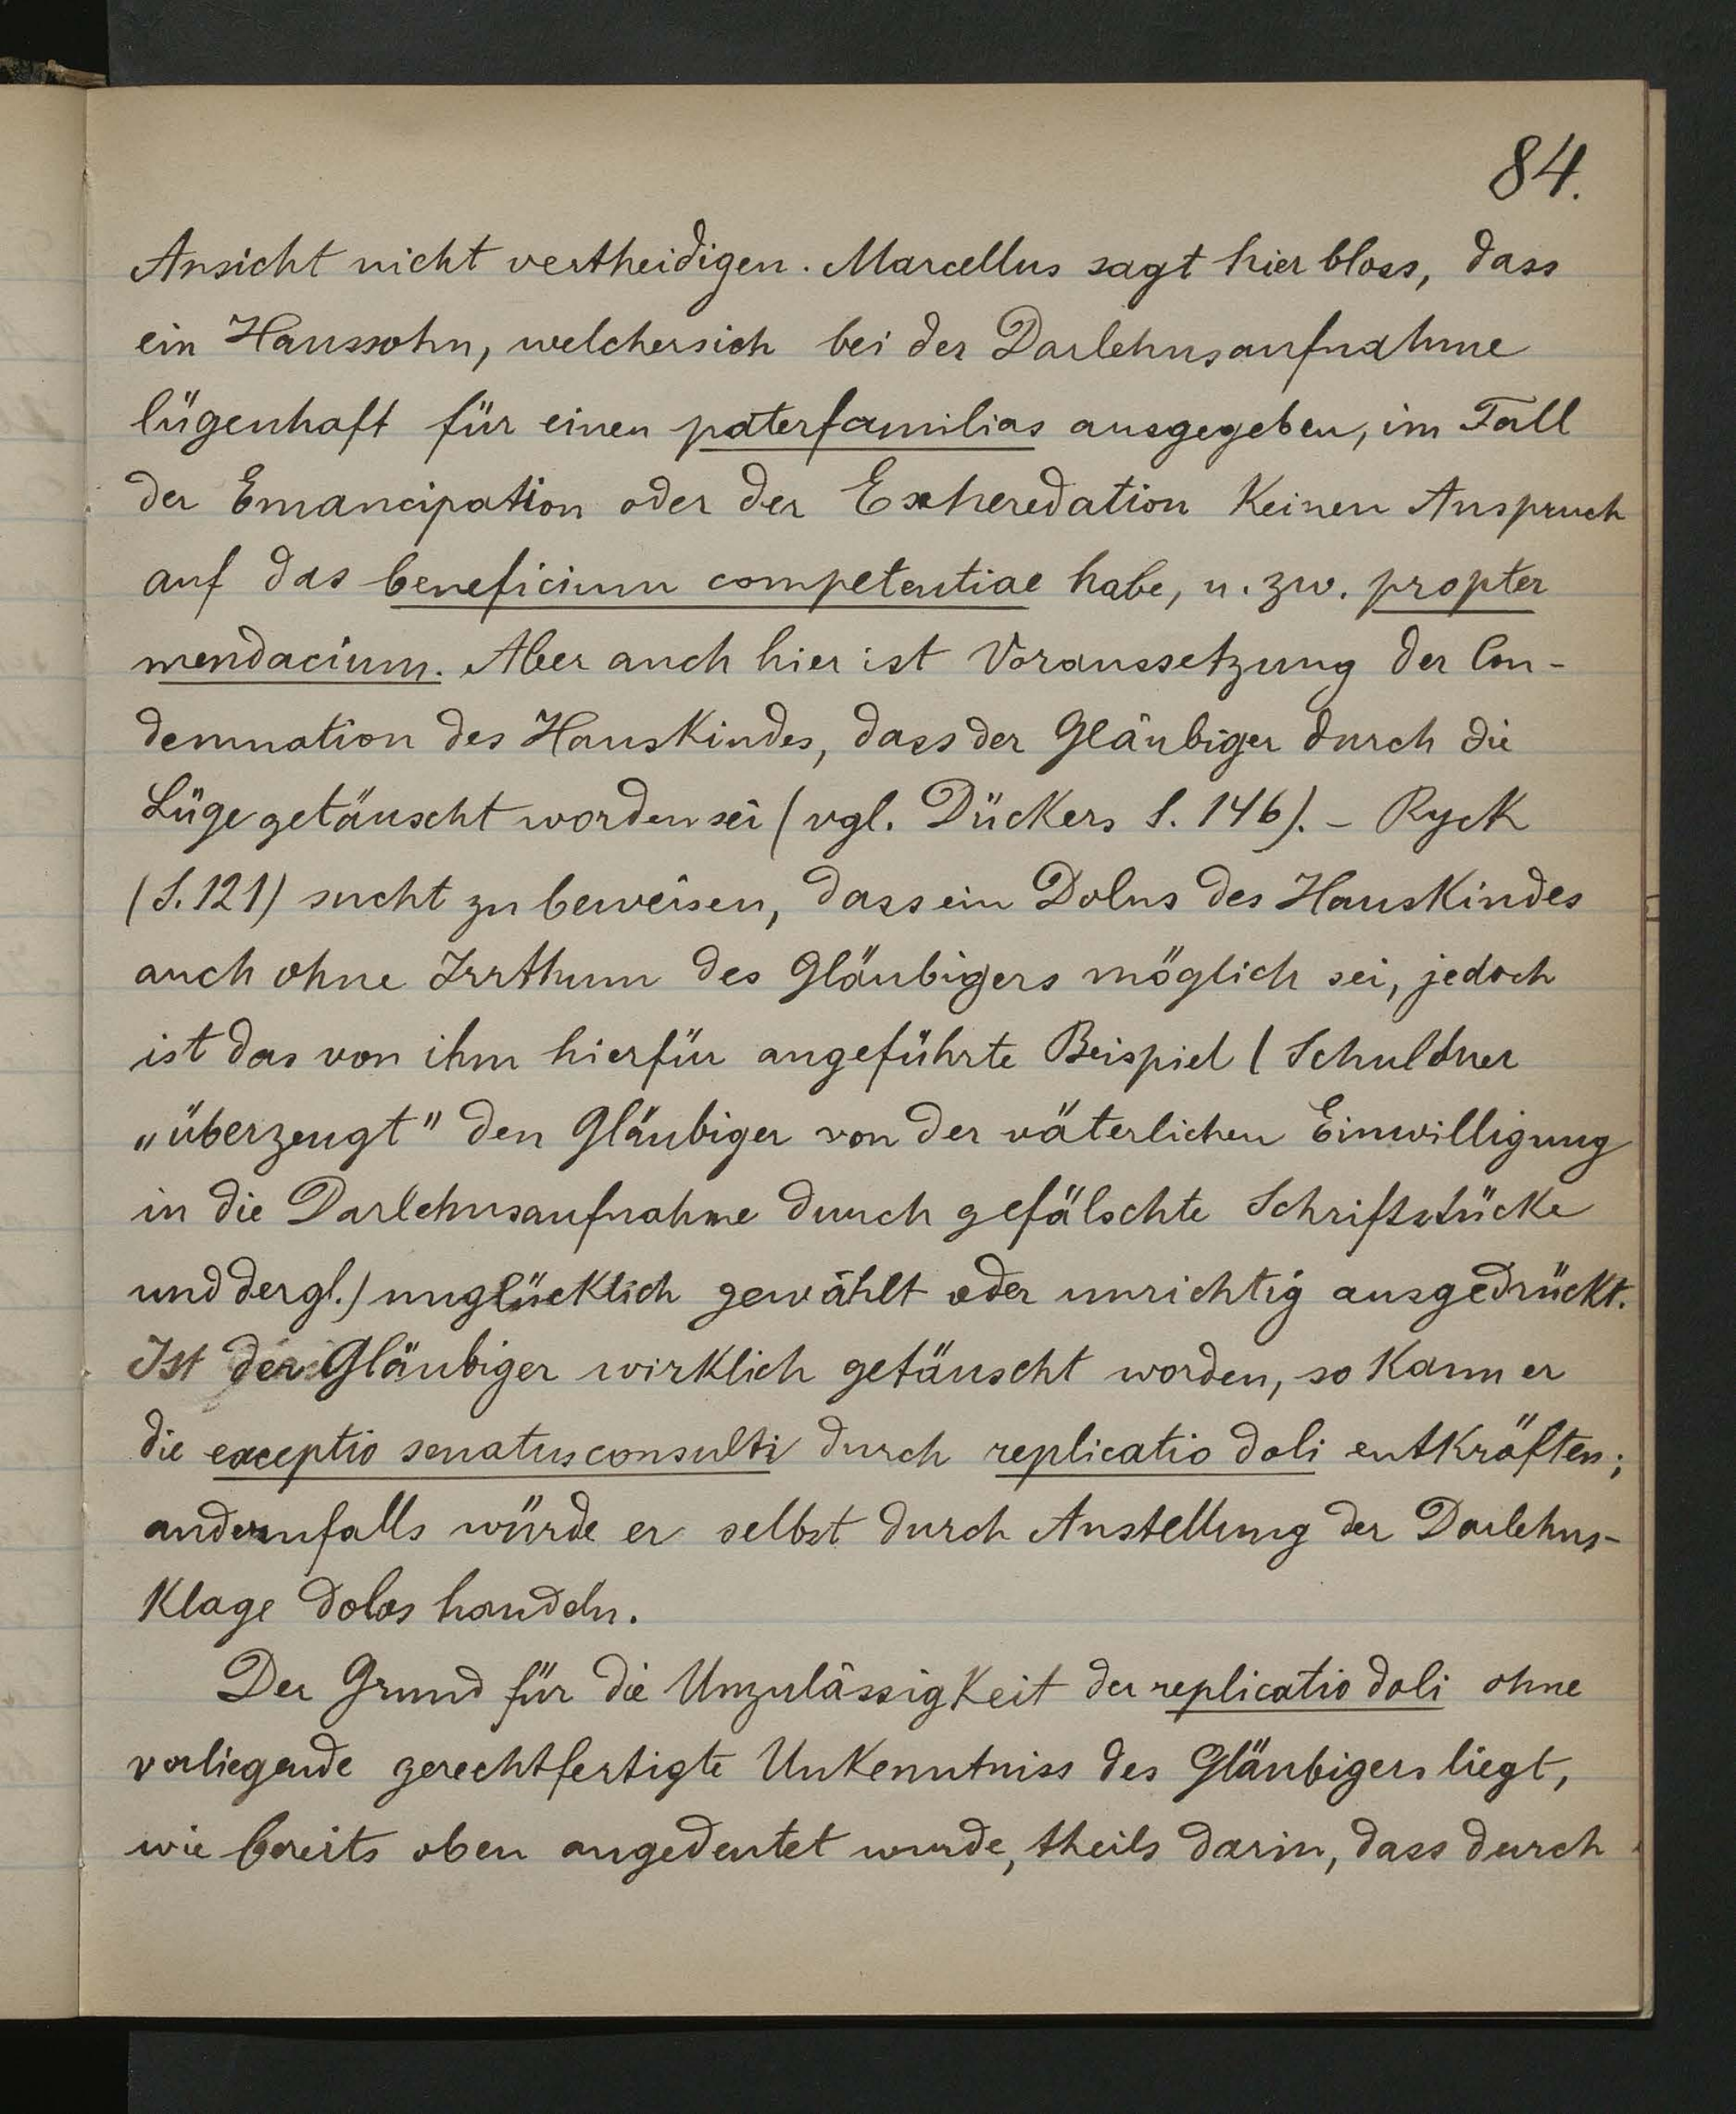 84.
Ansicht nicht vertheidigen. Marcellus sagt hier bloss, dass
ein Haussohn, welcher sich bei der Darlehnsaufnahme
lügenhaft für einen paterfamilias ausgegeben, im Fall
der Emancipation oder der Exheredation keinen Anspruch
auf das beneficium competentiae habe, u. zw. propter
mendacium. Aber auch hier ist Voraussetzung der Con-
demnation des Hauskindes, dass der Gläubiger durch die
Lüge getäuscht worden sei (vgl. Dückers S. 146). – Ryck
(S. 121) sucht zu beweisen, dass ein Dolus des Hauskindes
auch ohne Irrthum des Gläubigers möglich sei, jedoch
ist das von ihm hierfür angeführte Beispiel (Schuldner
„überzeugt" den Gläubiger von der väterlichen Einwilligung
in die Darlehnsaufnahme durch gefälschte Schriftstücke
und dergl.) unglücklich gewählt oder unrichtig ausgedrückt.
Ist der Gläubiger wirklich getäuscht worden, so kann er
die exceptio senatusconsulti durch replicatio doli entkräften;
andernfalls würde er selbst durch Anstellung der Darlehns-
klage dolos handeln.
Der Grund für die Unzulässigkeit der replicatio doli ohne
vorliegende gerechtfertigte Unkenntniss des Gläubigers liegt,
wie bereits oben angedeutet wurde, theils darin, dass durch